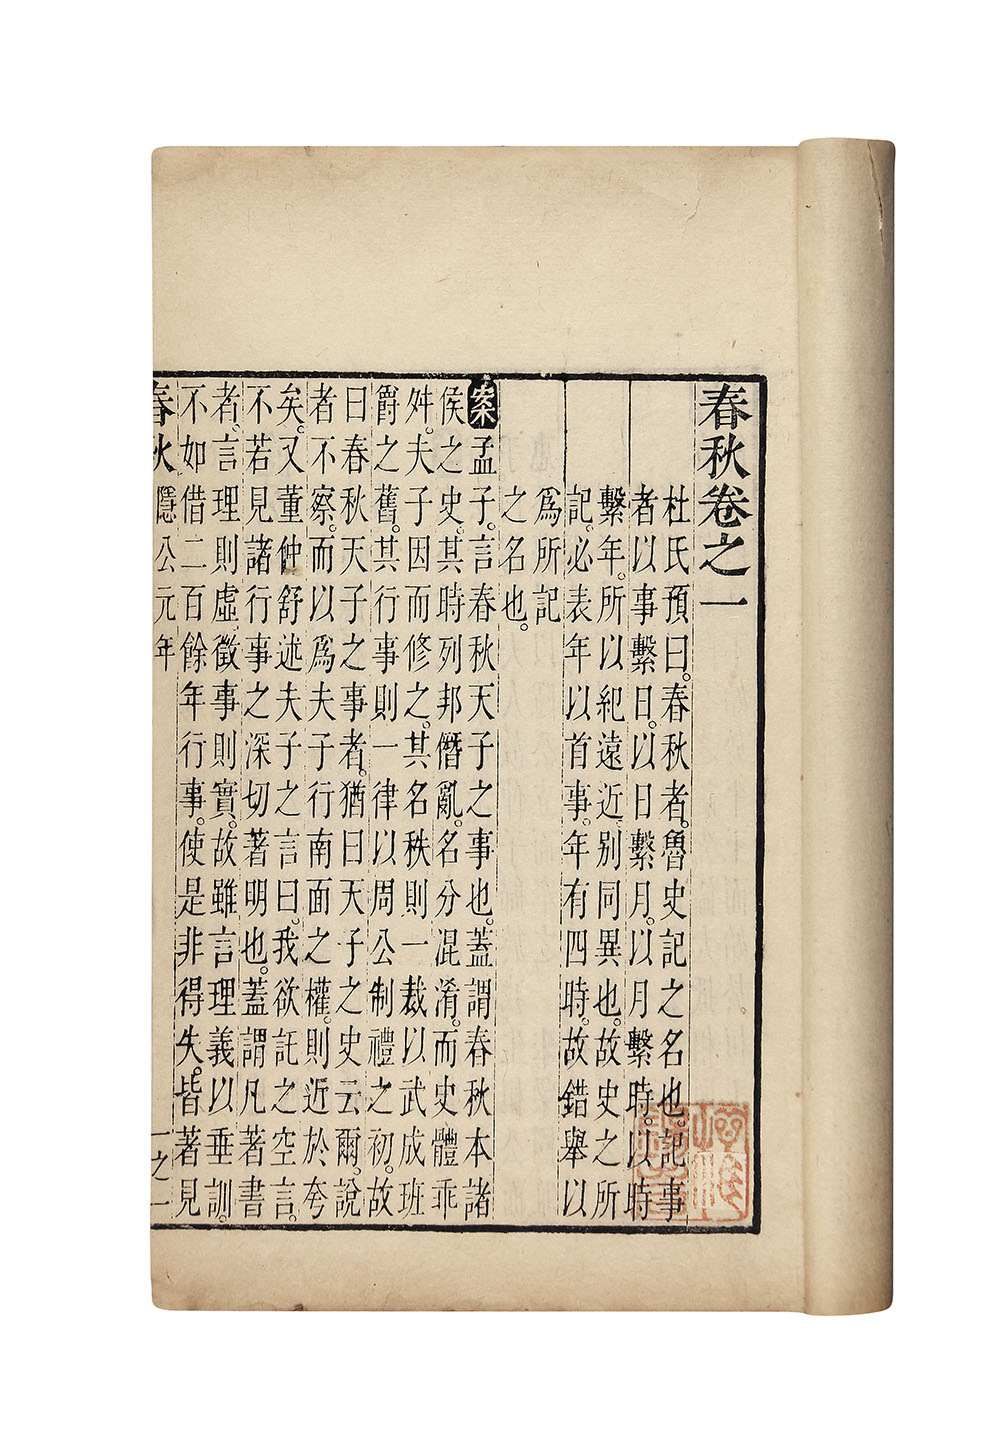 春秋卷之一
杜氏預曰。春秋者。魯史記之名也。記事
者。以事繫日。以日繫月。以月繫時。以時
繫年。所以紀遠近。別同異也。故史之所
記。必表年以首事。年有四時。故錯舉以
爲所記
之名也。
案孟子。言春秋天子之事也。蓋謂春秋本諸
侯之史。其時列邦僭亂。名分混淆。而史體乖
舛。夫子因而修之。其名秩則一裁以武成班
爵之舊。其行事則一律以周公制禮之初。故
曰春秋天子之事者。猶曰天子之史云爾。說
者不察。而以爲夫子行南面之權。則近於夸
矣。又董仲舒述夫子之言曰。我欲託之空言。
不若見諸行事之深切著明也。蓋謂凡著書
者。言理則虛。徵事則實。故雖言理義以垂訓。
不如借二百餘年行事。使是非得失。皆著見
春秋 隱公元年 一之一